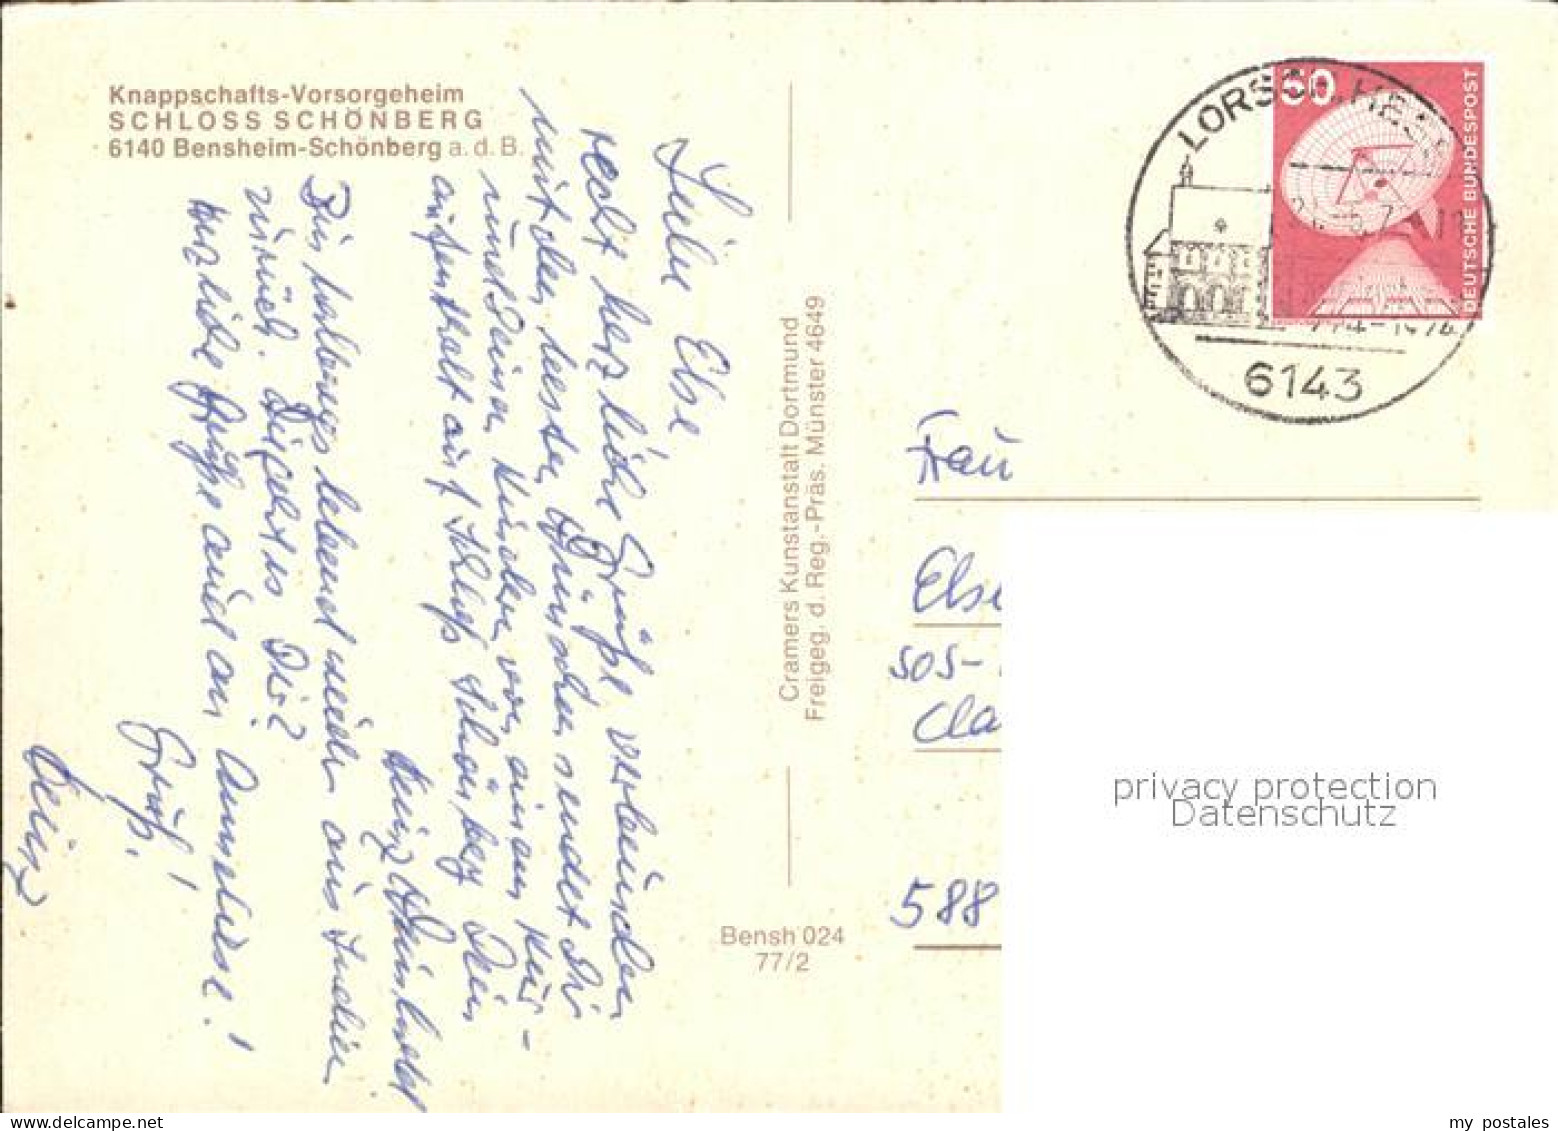 Knappschafts-Vorsorgeheim
SCHLOSS SCHÖNBERG
6140 Bensheim-Schönberg a. d. B.
Liebe Else
recht herzliche Grüße verbunden
mit den besten Wünschen sendet Dir
und Deinen Kindern von einem Kur-
aufenthalt auf Schloß Schönberg Dein
Heinz
Bin halbwegs lebend wieder aus Indien
zurück. Wie geht es Dir?
Herzliche Grüße auch an Anneliese!
Gruß,
Heinz
Cramers Kunstanstalt Dortmund
Freigeg. d. Reg.-Präs. Münster 4649
Bensh 024
77/2
60
DEUTSCHE BUNDESPOST
LORSCH, HESS
6143
Frau
Else
505-
Cla
588
privacy protection
Datenschutz
my postales